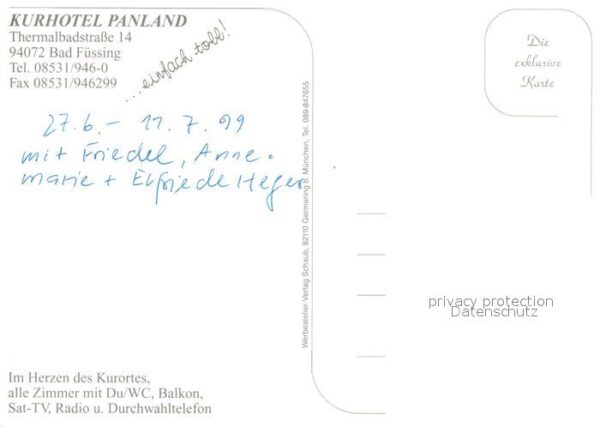 KURHOTEL PANLAND
Thermalbadstraße 14
94072 Bad Füssing
Tel. 08531/946-0
Fax 08531/946299
...einfach toll!
27.6. – 11.7.99
mit Friedel, Anne-
marie + Elfriede Heger
Im Herzen des Kurortes,
alle Zimmer mit Du/WC, Balkon,
Sat-TV, Radio u. Durchwahltelefon
Werbeatelier-Verlag Schaub, 82110 Germering b. München, Tel. 089-847655
Die
exklusive
Karte
privacy protection
Datenschutz